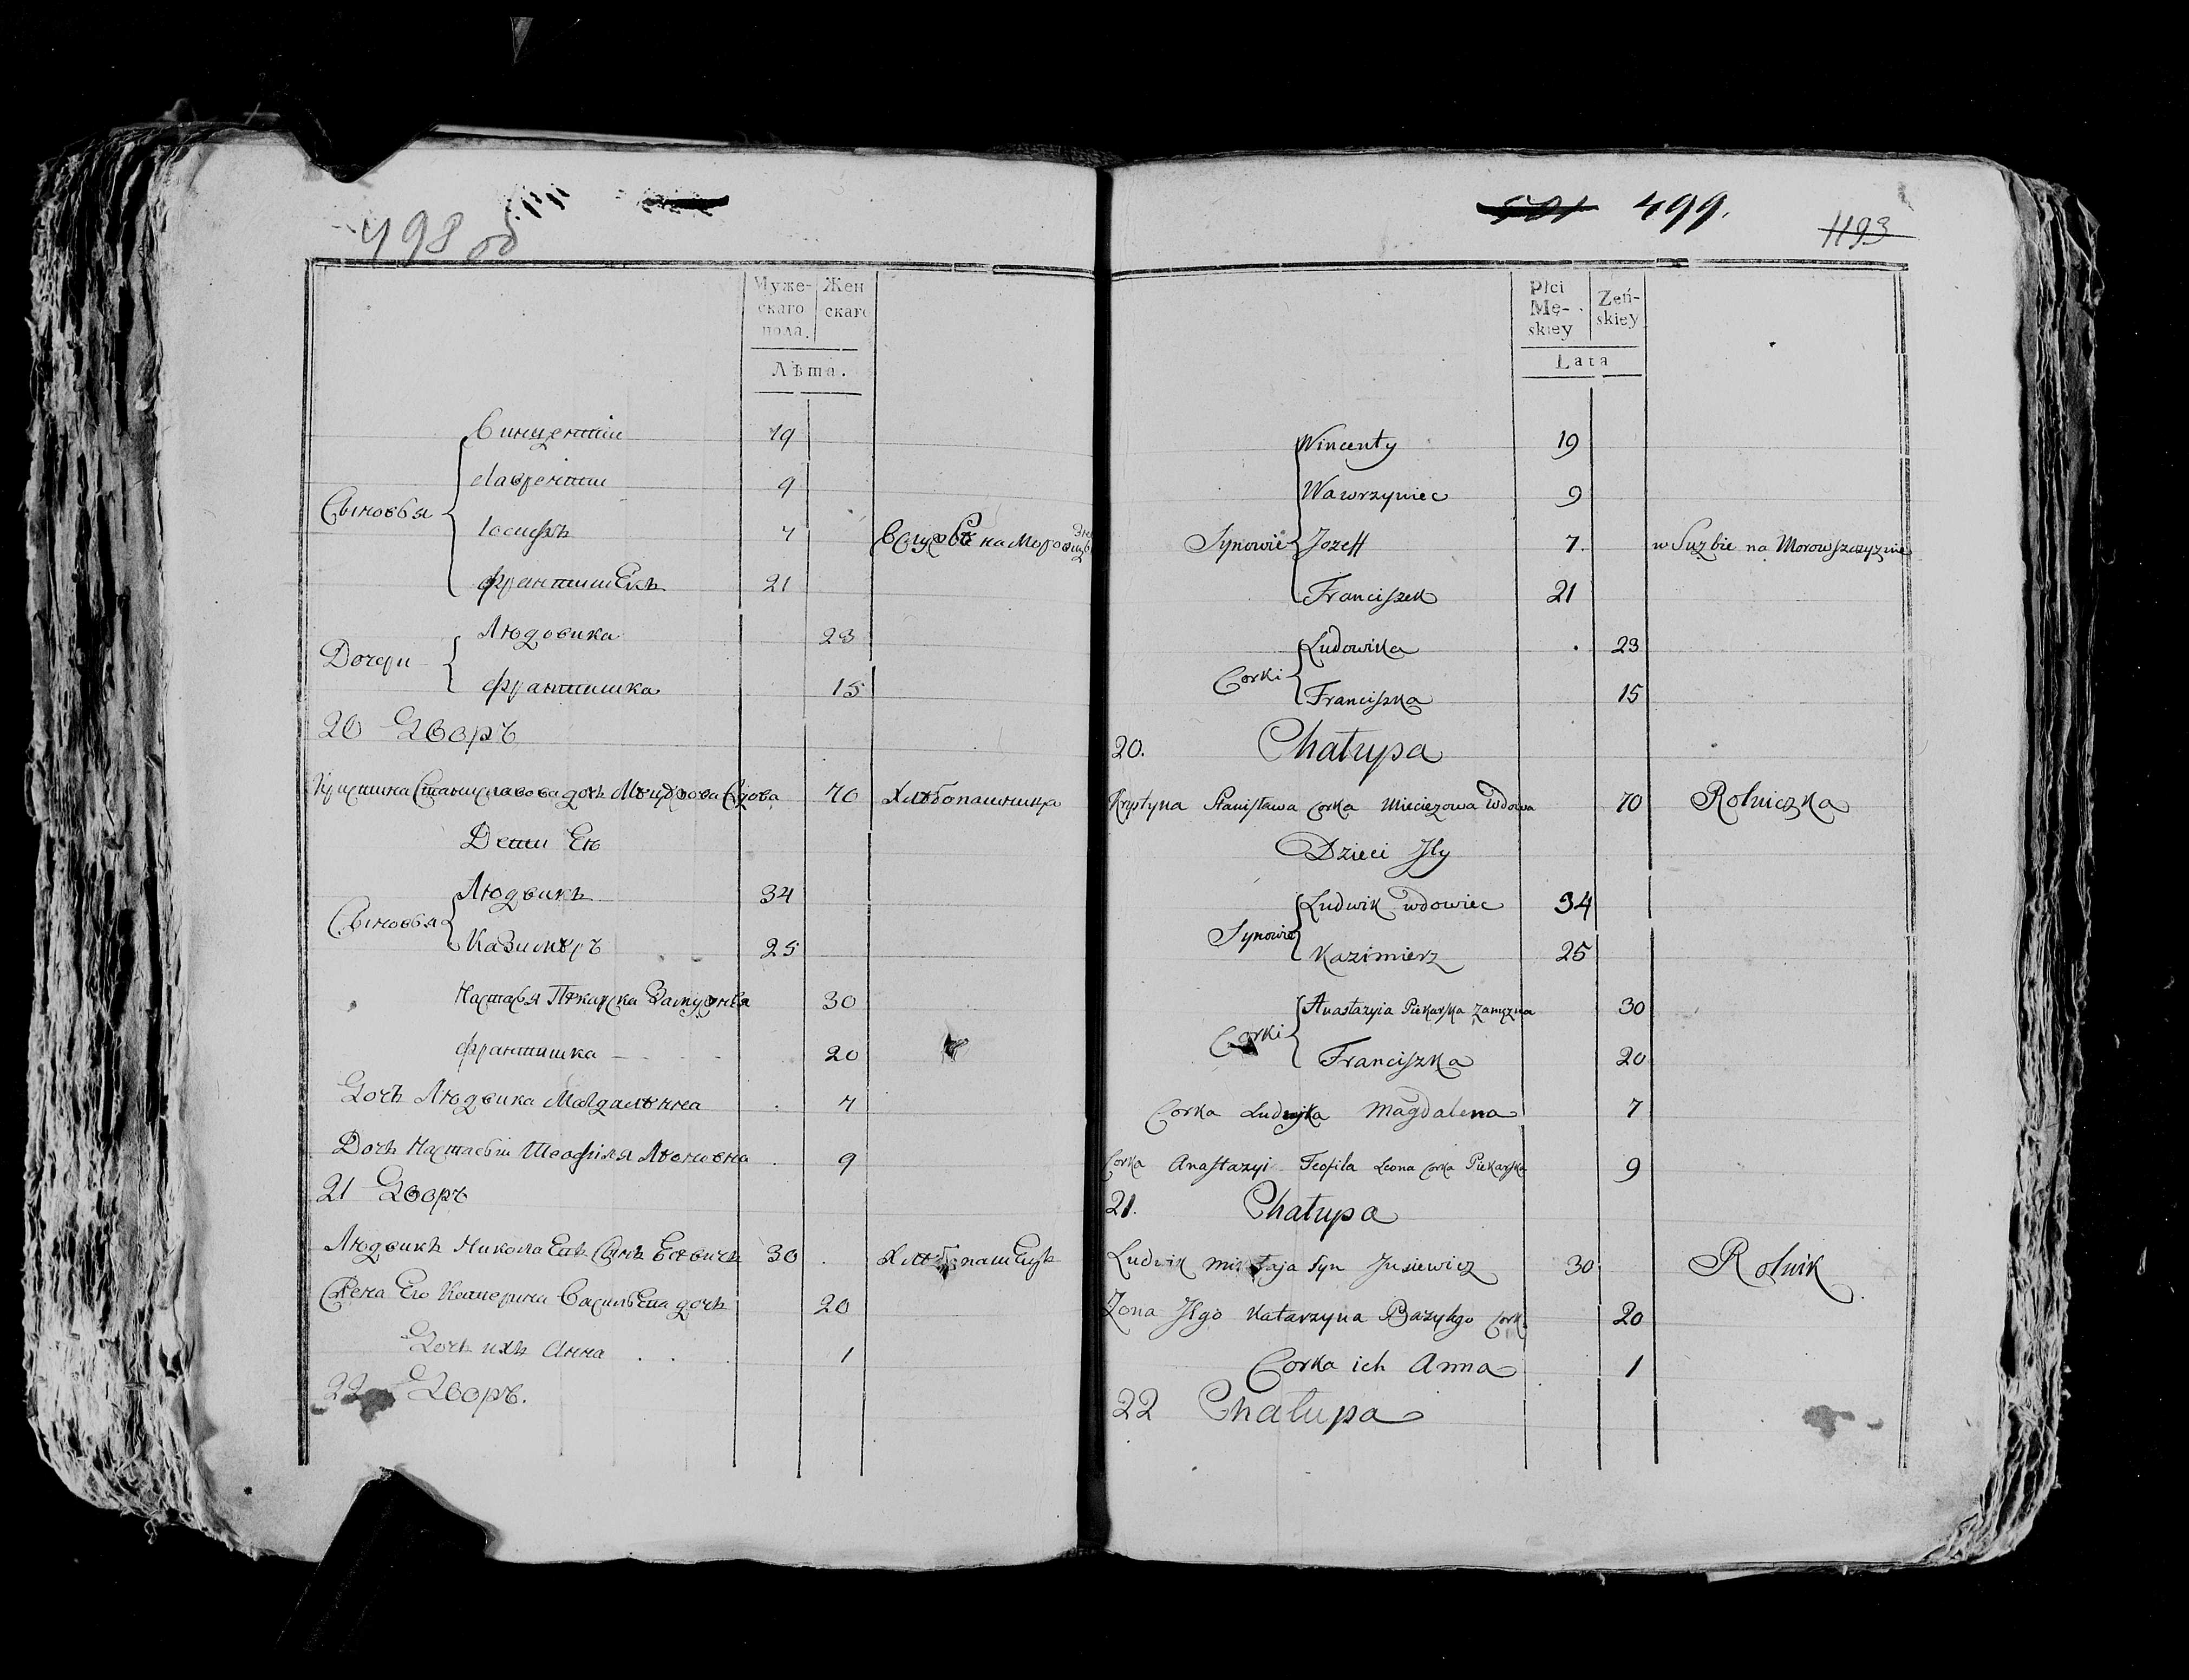 498 об
Муже-
скаго
пола.
Жен
скаго
Лѣта.
Винцентiи 19
Лаврентiи 9
Сыновья
Iосифъ 7
Францишекъ 21
Людовика 23
Дочери
Францишка 15
20 Дворъ
Станиславова дочь Вдова 70
Дети Ею
Людвикъ 34
Сыновья
Казимѣръ 25
Настасья Пѣкарска Замужня 30
Францишка 20
Дочь Людвика Магдалѣнна 7
Дочь Настасьи Теофиля Лѣоновна 9
21 Дворъ
Людвикъ Николаевъ Сынъ 30 Хлѣбопашецъ
Жена Его Катерина Васильева дочь 20
Дочь ихъ Анна 1
22 Дворъ.
501 499.
1193
Płci
Mę-
skiey
Zeń-
skiey
Lata
Wincenty 19
Wawrzyniec 9
Synowie Jozeff 7. w Suzbie na Morowszczyznie
Franciszek 21
Ludowika 23
Corki
Franciszka 15
20. Chałupa
Krystyna Stanisława Corka Mieciezowa Wdowa 70 Rolniczka
Dzieci Jey
Ludwik wdowiec 34
Synowie
Kazimierz 25
Anastazyia Piekarska Zamęzna 30
Corki
Franciszka 20
Corka Ludwika Magdalena 7
Corka Anastazyi Teofila Leona Corka Piekarska 9
21. Chałupa
Ludwik Mikołaja Syn Jusiewicz 30 Rolnik
Zona Jego Katarzyna Bazylego Cork 20
Corka ich Anna 1
22 Chałupa